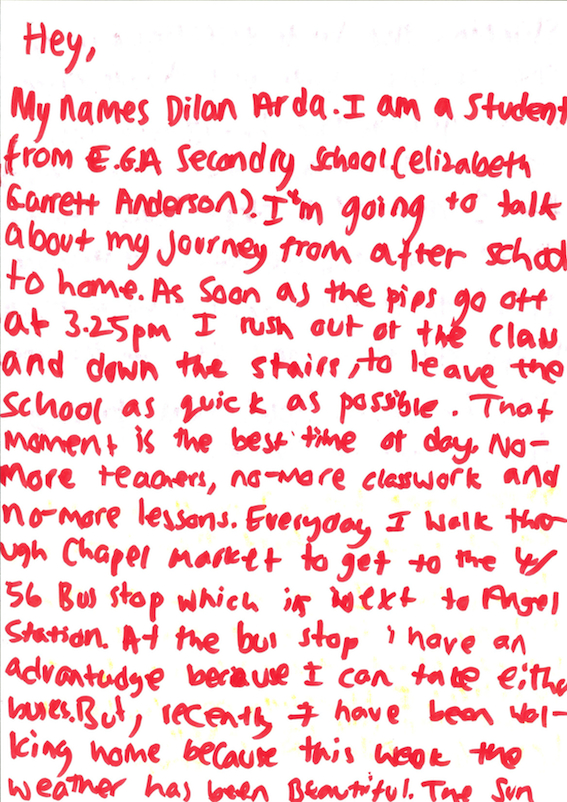 Hey,
My names Dilan Arda. I am a Student
from E.G.A Secondry school (elizabeth
Garrett Anderson). I'm going to talk
about my journey from after school
to home. As soon as the pips go off
at 3.25pm I rush out of the class
and down the stairs, to leave the
school as quick as possible. That
moment is the best time of day. No-
more teachers, no-more classwork and
no-more lessons. Everyday I walk thro-
ugh Chapel market to get to the 4/
56 Bus stop which is next to Angel
Station. At the bus stop i have an
advantadge because I can take eithe
buses. But, recently I have been wal-
king home because this week the
weather has been Beautiful. The Sun